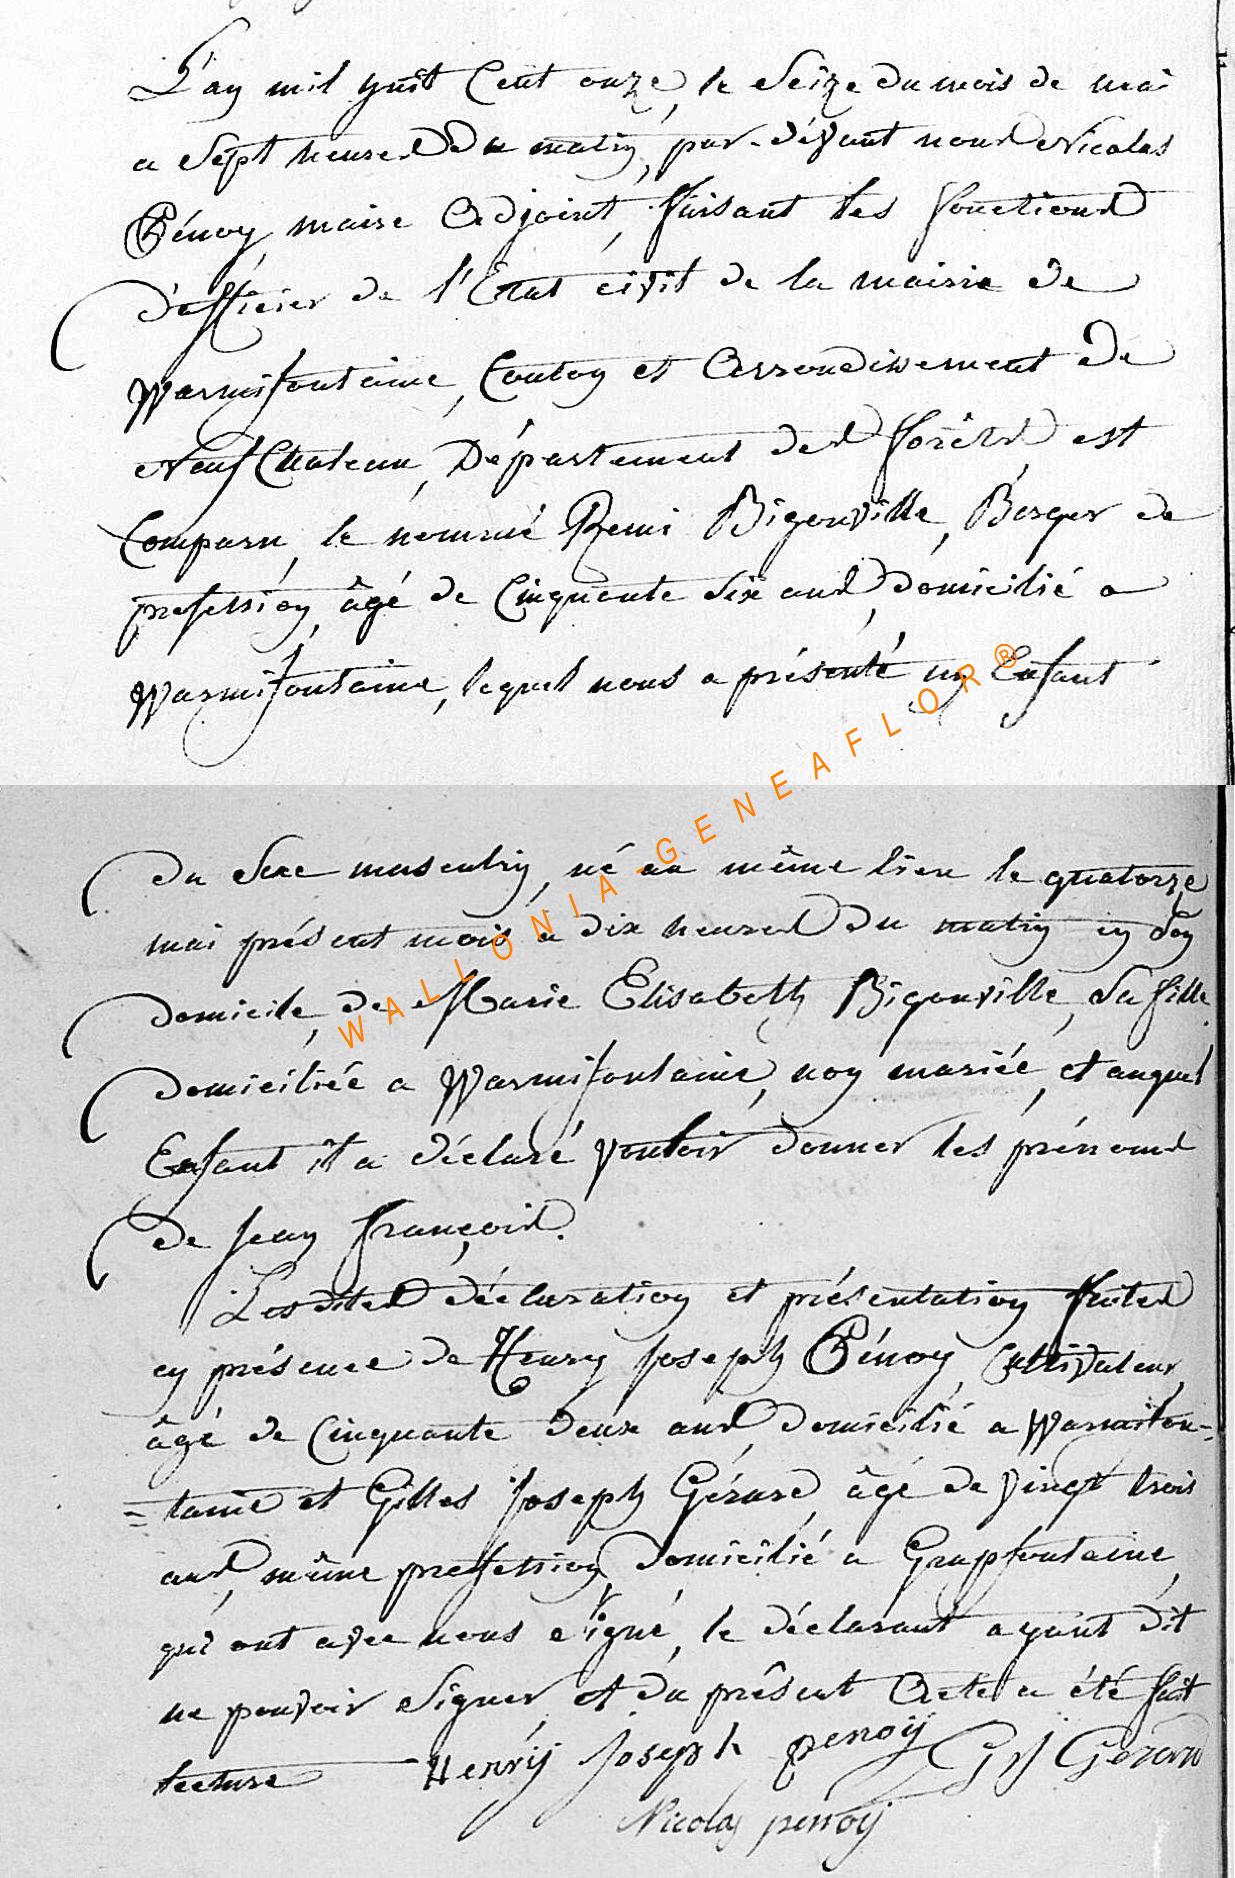 L'an mil huit Cent onze, le Seize du mois de mai
a Sept heures du matin, par-dévant nous Nicolas
Pénoy maire Adjoint, faisant les fonctions
d'officier de l'Etat civil de la mairie de
Warmifontaine, Canton et Arrondissement de
NeufChateau, Département des forêts, est
Comparu, le nommé Remi Bigonville, Berger de
profession, âgé de Cinquante Six ans, domicilié a
Warmifontaine, lequel nous a présenté un Enfant
WALLONIA-GENEAFLOR®
du Sexe masculin, né au même lieu le quatorze
mai présent mois a dix heures du matin en Son
domicile, de Marie Elisabeth Bigonville, Sa fille
domiciliée a Warmifontaine, non mariée, et auquel
Enfant il a déclaré vouloir donner les prénoms
de Jean François.
Lesdites déclaration et présentation faites
en présence de Henry Joseph Pénoy, Cultivateur,
âgé de Cinquante deux ans, domicilié a Warmifon-
=taine et Gilles Joseph Gérard, âgé de vingt trois
ans, même profession, domicilié a Grapfontaine,
qui ont avec nous signé, le déclarant ayant dit
ne pouvoir Signer, et du présent Acte a été fait
lecture Henrÿ Joseph penoÿ GJ Gerard
Nicolas penoÿ